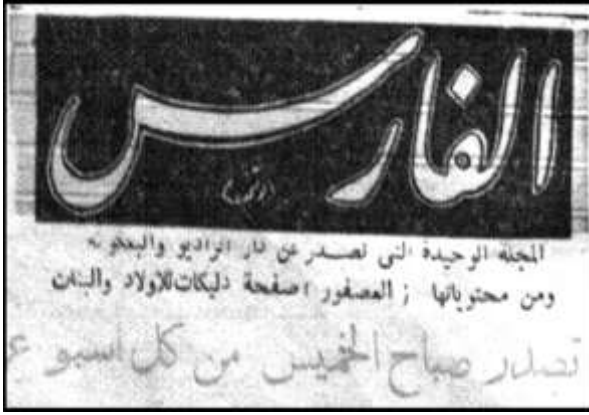 الفارس
المجلة الوحيدة التي تصدر عن دار الراديو والبعكوكه
ومن محتوياتها ( العصفور ) صفحة دليكات للاولاد والبنات
تصدر صباح الخميس من كل أسبوع